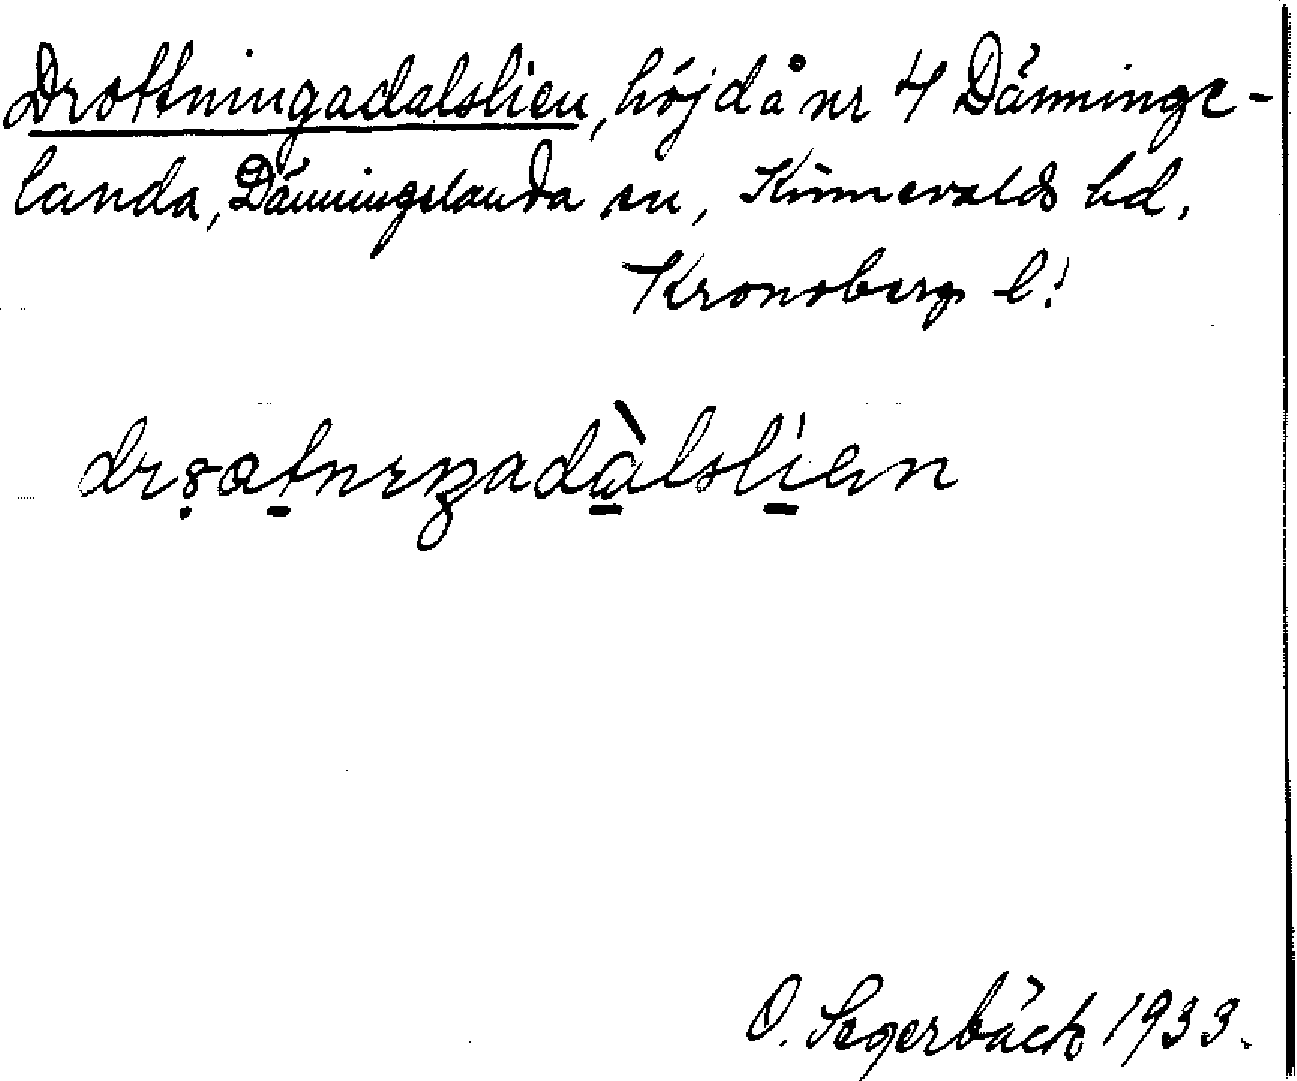 Drottningadalslien, höjd å nr 4 Dänninge-
landa, Dänningelanda sn, Kinnevalds hd.
Kronobergs l.
O. Segerbäck 1933.